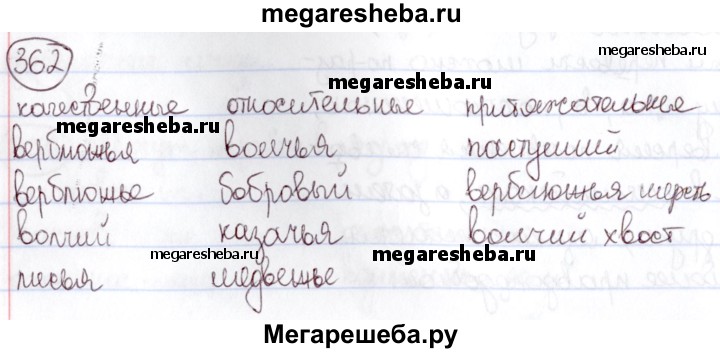 megaresheba.ru
362
megaresheba.ru
megaresheba.ru
качественные относительные притяжательные
megaresheba.ru
вербложья волчья пастуший
верблюжье бобровый верблюжья шерсть
волчий казачья волчий хвост
megaresheba.ru
megaresheba.ru
лисья медвежье
Мегарешеба.ру